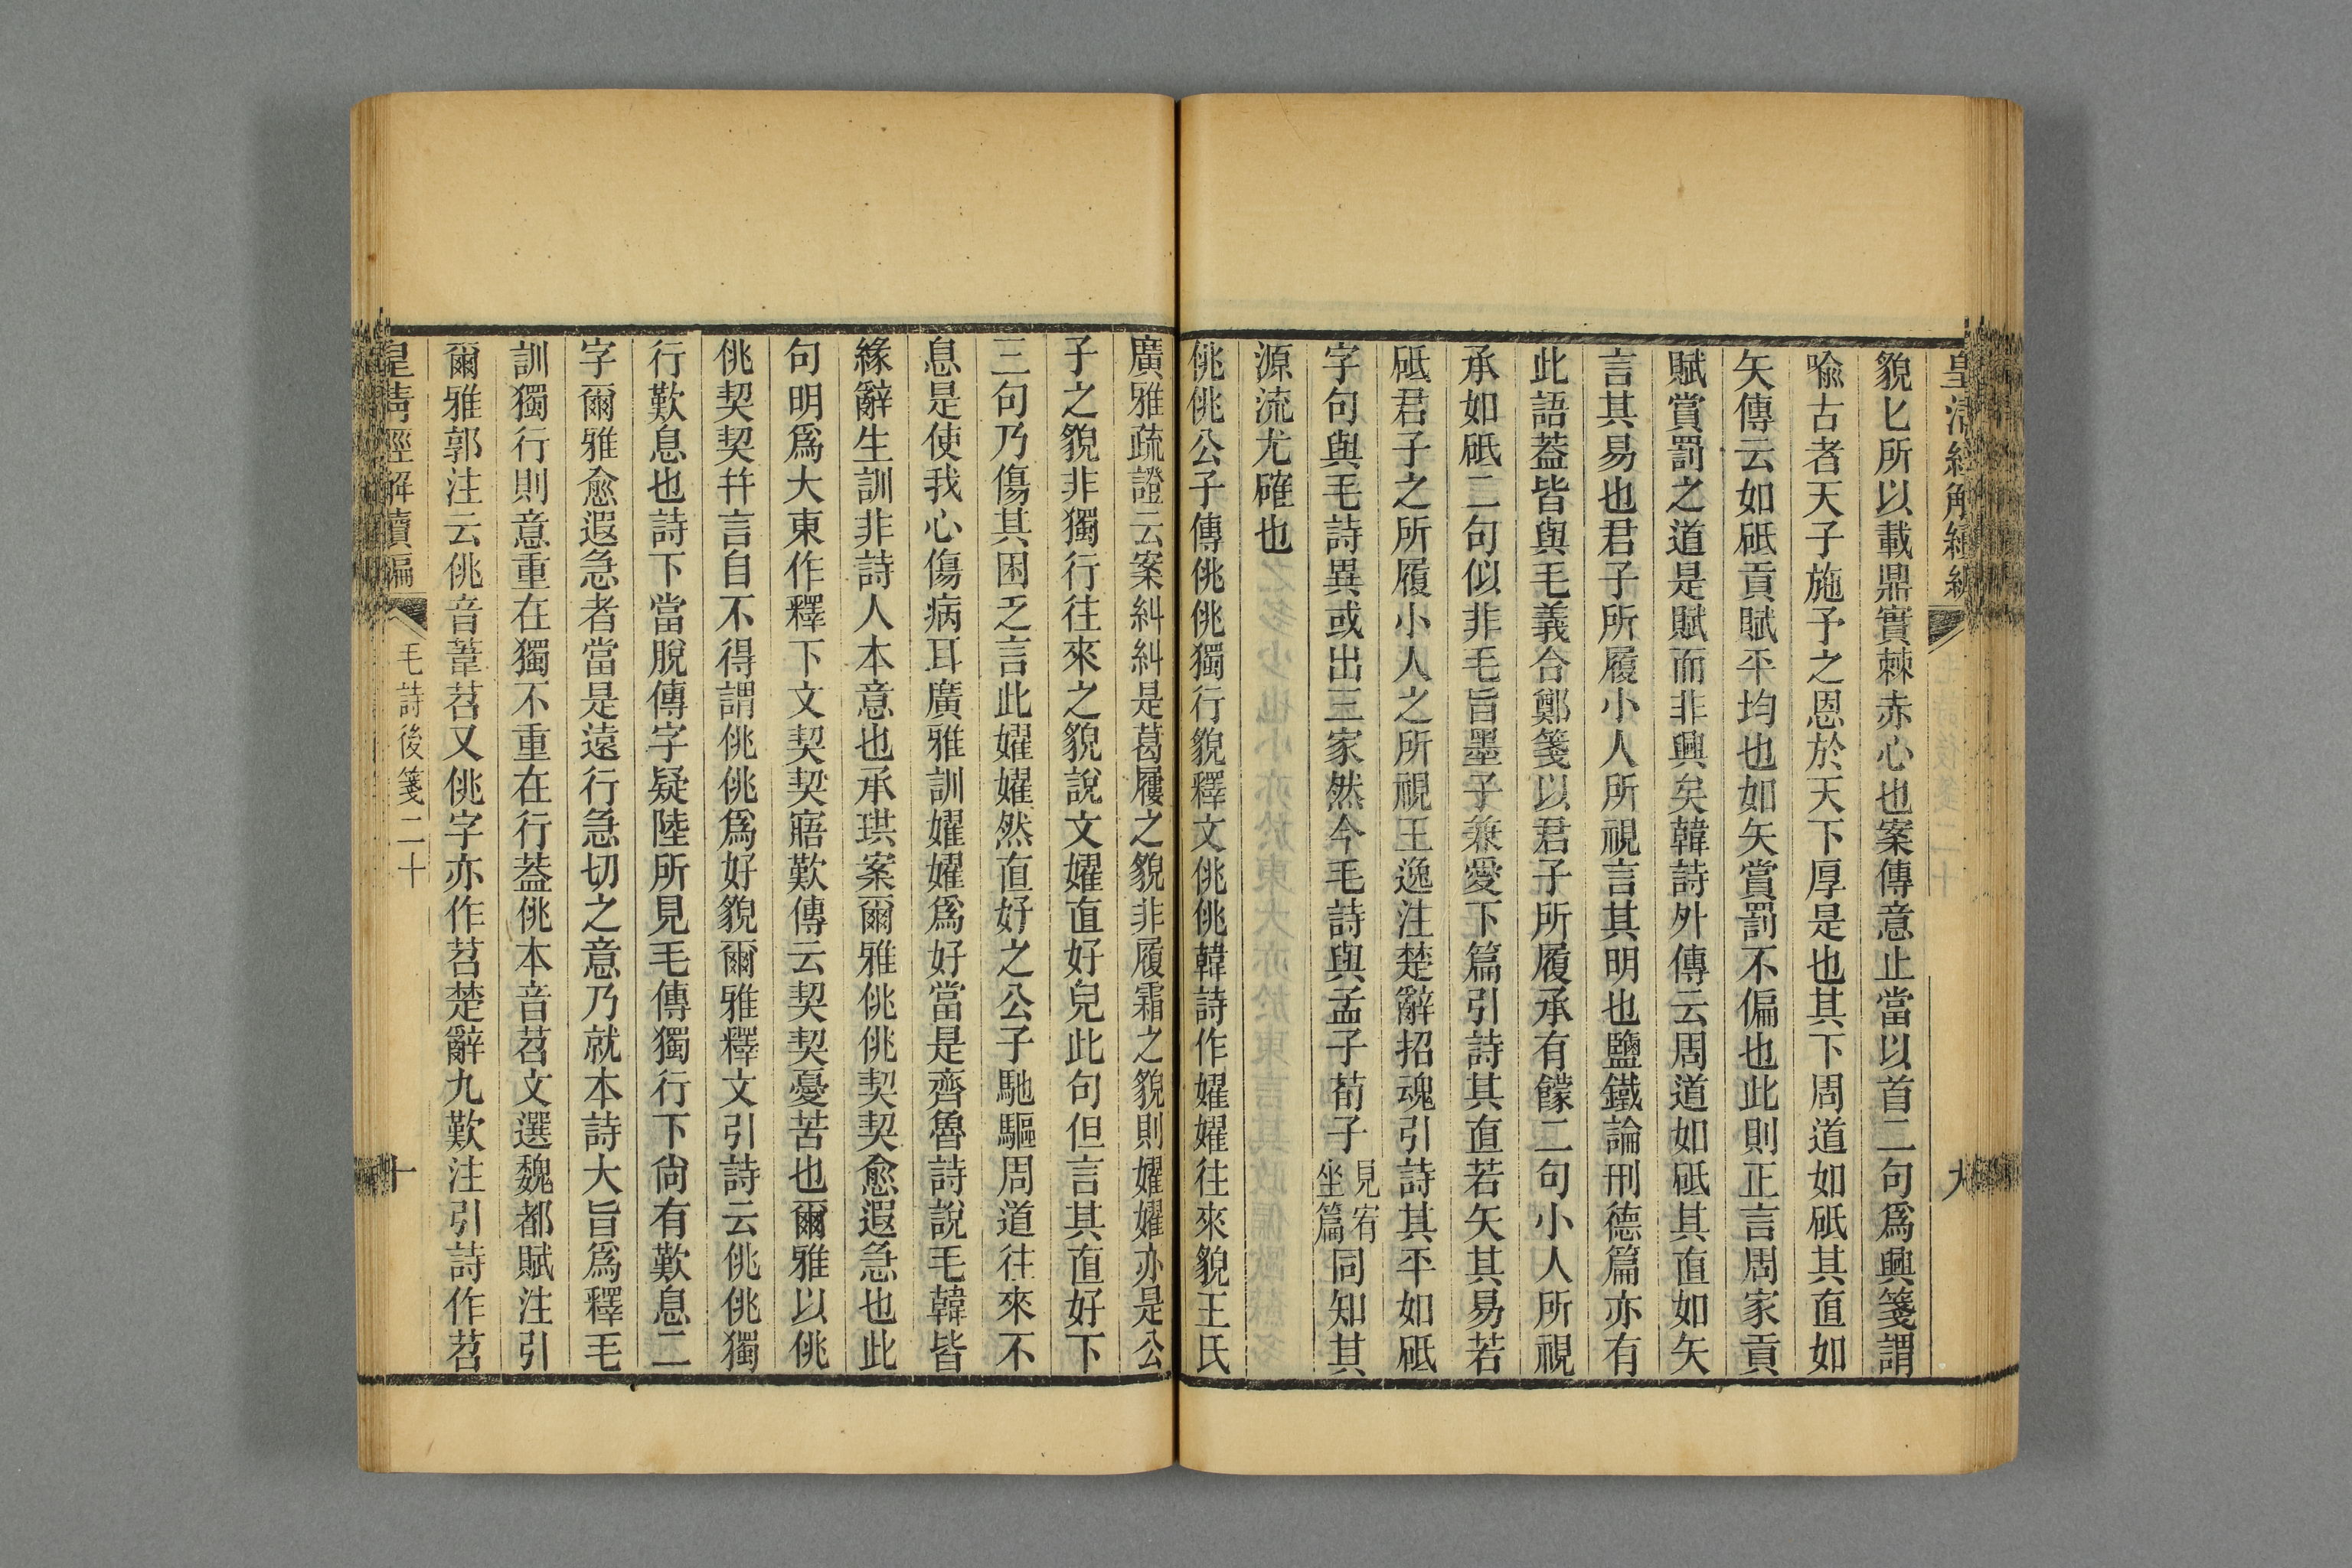 皇清經解續編
九
貌匕所以載鼎實棘赤心也案傳意止當以首二句爲興箋謂
喩古者天子施予之恩於天下厚是也其下周道如砥其直如
矢傳云如砥貢賦平均也如矢賞罰不偏也此則正言周家貢
賦賞罰之道是賦而非興矣韓詩外傳云周道如砥其直如矢
言其易也君子所履小人所視言其明也鹽鐵論刑德篇亦有
此語蓋皆與毛義合鄭箋以君子所履承有饛二句小人所視
承如砥二句似非毛旨墨子兼愛下篇引詩其直若矢其易若
砥君子之所履小人之所視王逸注楚辭招魂引詩其平如砥
字句與毛詩異或出三家然今毛詩與孟子荀子見宥坐篇同知其
源流尤確也
佻佻公子傳佻佻獨行貌釋文佻佻韓詩作嬥嬥往來貌王氏
廣雅疏證云案糾糾是葛屨之貌非履霜之貌則嬥嬥亦是公
子之貌非獨行往來之貌說文嬥直好皃此句但言其直好下
三句乃傷其困乏言此嬥嬥然直好之公子馳驅周道往來不
息是使我心傷病耳廣雅訓嬥嬥爲好當是齊魯詩說毛韓皆
緣辭生訓非詩人本意也承珙案爾雅佻佻契契愈遐急也此
句明爲大東作釋下文契契寤歎傳云契契憂苦也爾雅以佻
佻契契幷言自不得謂佻佻爲好貌爾雅釋文引詩云佻佻獨
行歎息也詩下當脫傳字疑陸所見毛傳獨行下尙有歎息二
字爾雅愈遐急者當是遠行急切之意乃就本詩大旨爲釋毛
訓獨行則意重在獨不重在行蓋佻本音苕文選魏都賦注引
爾雅郭注云佻音葦苕又佻字亦作苕楚辭九歎注引詩作苕
皇清經解續編
毛詩後箋二十
十